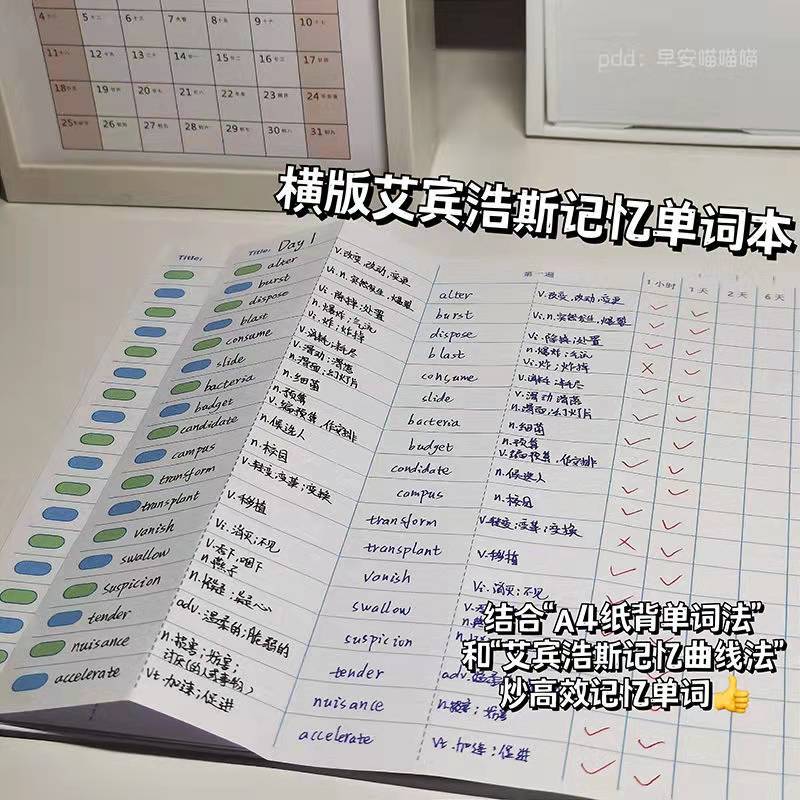 4 5 6 7 8 9 10
11 12 13 14 15 16 17
18 19 20 21 22 23 24
25 26 27 28 29 30 31
pdd：早安喵喵喵
横版艾宾浩斯记忆单词本
Title:
Title: Day 1
alter v.改变,改动,变更
burst vi.n.突然发生,爆裂
dispose vi.除掉;处置
blast n.爆炸;气流
vi.炸;炸掉
consume v.消耗;耗尽
slide v.滑动;滑落
n.滑面;幻灯片
bacteria n.细菌
budget n.预算
v.编预算,作安排
candidate n.候选人
campus n.校园
transform v.转变;变革;变换
transplant v.移植
vanish vi.消灭;不见
swallow v.吞下;咽下
n.燕子
suspicion n.怀疑;疑心
tender adv.温柔的;脆弱的
nuisance n.损害;妨害;
讨厌(的人或事物)
accelerate vt.加速;促进
第一遍 1小时 1天 2天 6天
alter v.改变,改动,变更
burst vi.n.突然发生,爆裂
dispose vi.除掉;处置
blast n.爆炸;气流
vi.炸;炸掉
consume v.消耗;耗尽
slide v.滑动 滑落
n.滑面;幻灯片
bacteria n.细菌
budget n.预算
v.编预算,作安排
candidate n.候选人
campus n.校园
transform v.转变;变革;变换
transplant v.移植
vanish vi.消灭;不见
swallow
suspicion
tender adv.
nuisance n.损害;妨害
accelerate vt.加速;促进
结合“A4纸背单词法”
和“艾宾浩斯记忆曲线法”
炒高效记忆单词👍